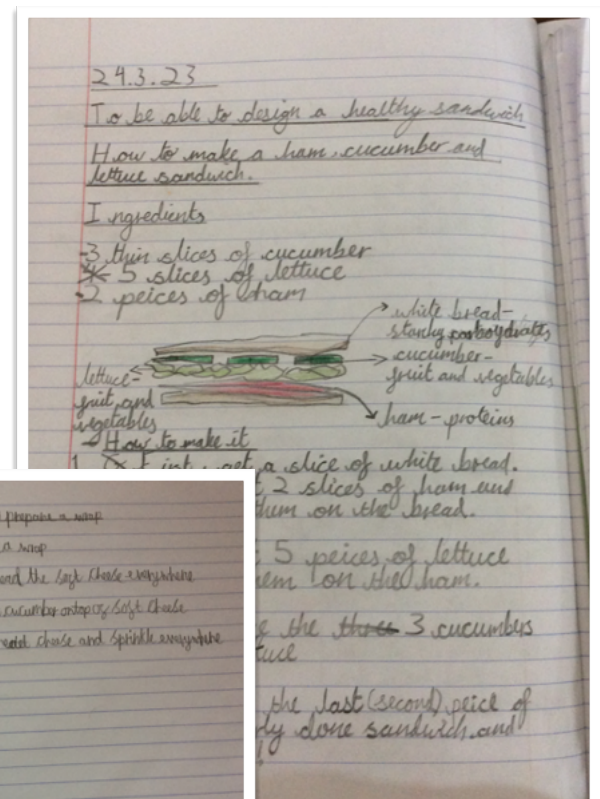 24.3.23
To be able to design a healthy sandwich
How to make a ham, cucumber and
lettuce sandwich.
Ingredients
-3 thin slices of cucumber
5 slices of lettuce
-2 peices of ham
white bread-
starchy carbohydrates
cucumber-
fruit and vegetables
ham-proteins
lettuce-
fruit and
vegetables
How to make it
1. First, get a slice of white bread.
2 slices of ham and
them on the bread.
5 peices of lettuce
them on the ham.
the three 3 cucumbers
the last (second) peice of
done sandwich and
prepare a wrap
a wrap
the soft cheese everywhere
cucumber ontop of soft cheese
cheese and sprinkle everywhere